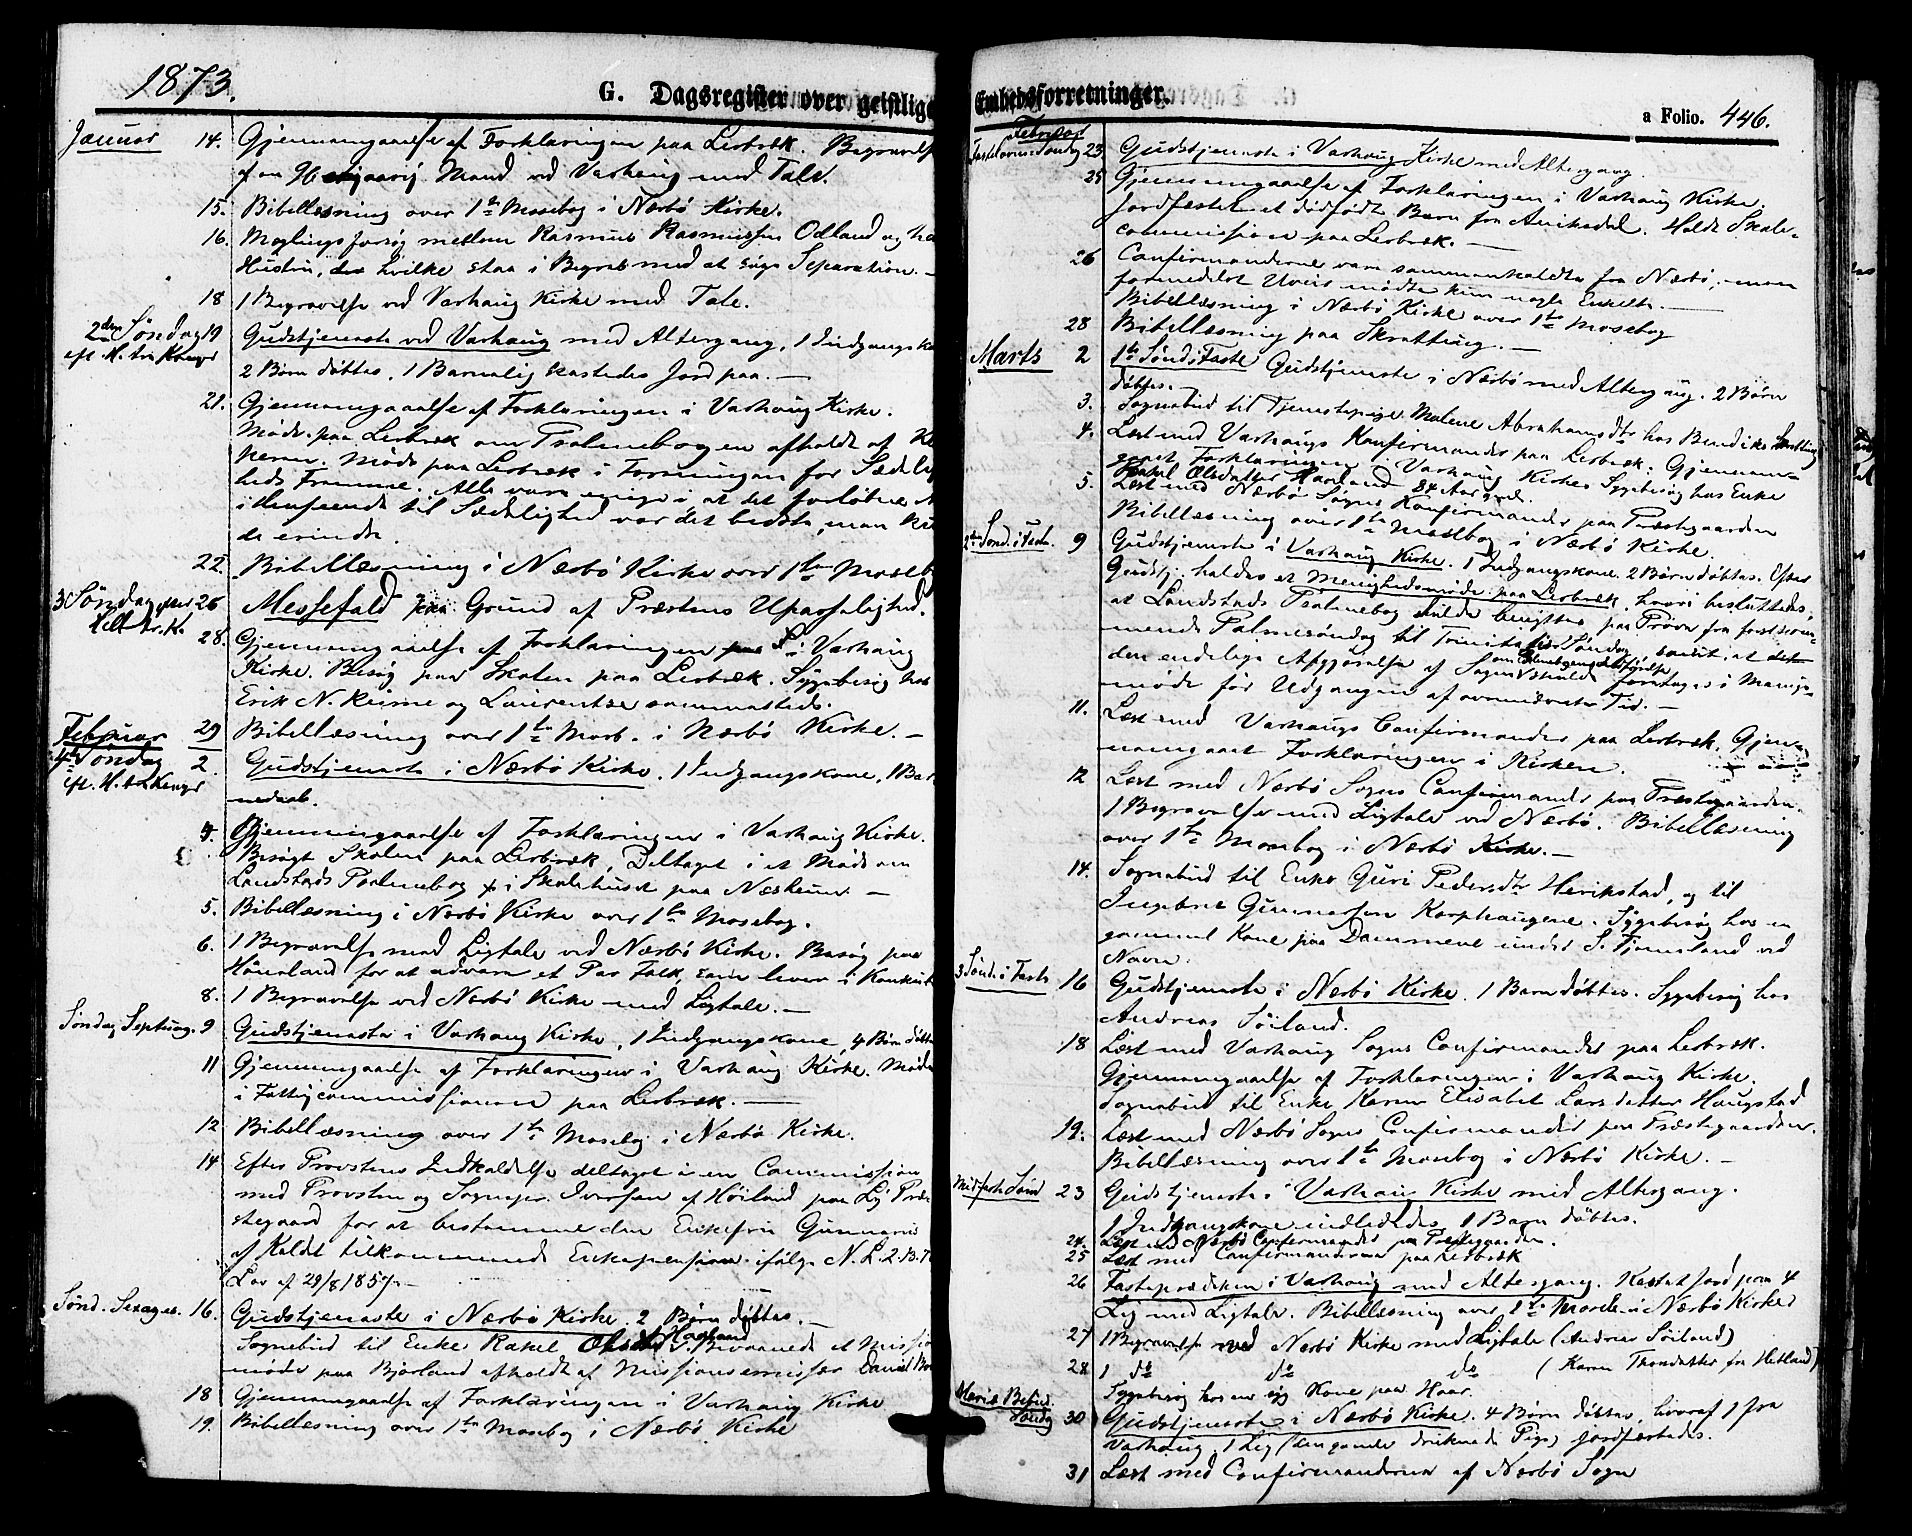 1873.
G. Dagsregister over geistlige
Januar 14. Gjennemgaaelse af Forklaringen paa Lerbræk. Begravelse
af en Mand ved Varhaug med Tale.
15. Bibellæsning over 1ste Mosebog i Nærbö Kirke.
16. Mæglingsforsøg mellem Rasmus Rasmussen Odland og ha
Hustru, hvilke staa i Begreb med at søge Separation.
18 1 Begravelse ved Varhaug Kirke med Tale.
2den Söndag 19 Gudstjeneste ved Varhaug med Altergang, 1 Indgangsk
eft. H. tre Konger
2 Börn döbtes, 1 Barnelig kastedes Jord paa.
21. Gjennemgaaelse af Forklaringen i Varhaug Kirke.
Møde paa Lerbræk om Psalmebogen afholdt af
Møde paa Lerbræk i Foreningen for Sædelig
heds Fremme. Alle vare enige i at det forløbne
i Henseende til Sædelighed var det bedste, man
de erindre.
22. Bibellæsning i Nærbö Kirke over 1ste Moseb
3 Söndag efter 26 Messefald paa Grund af Præstens Upasselighed.
Hell. tr. K.
28. Gjennemgaaelse af Forklaringen i Varhaug
Kirke. Besög paa Skolen paa Lerbræk. Sygebesög hos
Erik N. Reime og Laurentse sammesteds.
29 Bibellæsning over 1ste Moseb. i Nærbö Kirke.
Februar
4de Söndag 2. Gudstjeneste i Nærbö Kirke. 1 Indgangskone, 1 Bar
eft. H. tre Konger
nedaab.
4. Gjennemgaaelse af Forklaringen i Varhaug Kirke.
Besögt Skolen paa Lerbræk, Deltaget i et Møde om
Landstads Psalmebog i Skolehuset paa Næsheim
5. Bibellæsning i Nærbö Kirke over 1ste Mosebog.
6. 1 Begravelse med Ligtale ved Nærbö Kirke. Besög paa
Hörland for at advare et Par Folk, som lever i Konkubi
8. 1 Begravelse ved Nærbö Kirke med Ligtale.
Söndag Septuag. 9 Gudstjeneste i Varhaug Kirke, 1 Indgangskone, 4 Börn döbte
11 Gjennemgaaelse af Forklaringen i Varhaug Kirke. Møde
i Fattigcommissionen paa Lerbræk.
12 Bibellæsning over 1ste Moseb. i Nærbö Kirke.
14 Efter Provstens Indkaldelse deltaget i en Commission
med Provsten og Sognepr. Iversen af Höiland paa Lÿe Præ
stegaard for at bestemme den Enkefru Gunnarie
af Kaldet tilkommende Enkepension ifølge N. L. 2. B. 7
Lov af 29/8 1857.
Sönd. Sexages. 16. Gudstjeneste i Nærbö Kirke. 2 Börn döbtes.
Haaland
Sognebud til Enke Rakel Olsdatter. Bivaanede et Missio
møde paa Bjorland afholdt af Missionsemissær Daniel
18 Gjennemgaaelse af Forklaringen i Varhaug Kirke
19. Bibellæsning over 1ste Mosebog i Nærbö Kirke
Embedsforretninger.
a Folio. 446.
Februar
Fastelavns Söndag 23. Gudstjeneste i Varhaug Kirke med Altergang.
25 Gjennemgaaelse af Forklaringen i Varhaug Kirke.
Jordfæstet et dødfødt Barn fra Aniksdal. Holdt Skole-
commission paa Lerbræk.
26 Confirmanderne vare sammenkaldte fra Nærbö, men
formedelst Uveir mødte kun nogle Enkelte.
Bibellæsning i Nærbö Kirke over 1ste Mosebog
28 Bibellæsning paa Skretting.
Marts 2 1ste Sönd. i Faste Gudstjeneste i Nærbö med Altergang. 2 Börn
döbtes.
3. Sognebud til Tjenestepige Malene Abrahamsdtr hos Bendiks
4. Læst med Varhaugs Konfirmander paa Lerbræk. Gjennem-
gaaet Forklaringen i Varhaug Kirke. Sygebesög hos Enke
Rakel Olsdatter Haaland 84 Aar gml.
5. Læst med Nærbö Sogns Konfirmander paa Præstegaarden
Bibellæsning over 1ste Mosebog i Nærbö Kirke.
2den Sönd. i Faste. 9 Gudstjeneste i Varhaug Kirke. 1 Indgangskone. 2 Börn döbtes. Efter
Gudstj. holdes et Menighedsmøde paa Lerbræk, hvori besluttedes,
at Landstads Psalmebog skulde benyttes paa Prøve fra førstkom-
mende Palmesöndag til Trinitatis Söndag, samt, at
om Psalmebogens Indförelse
den endelige Afgjørelse af Sagen skulde foretages i Menigh.
møde før Udgangen af ovennævnte Tid.
11. Læst med Varhaugs Confirmander paa Lerbræk. Gjen-
nemgaaet Forklaringen i Kirken.
12 Læst med Nærbö Sogns Confirmander paa Præstegaarden.
1 Begravelse med Ligtale ved Nærbö. Bibellæsning
over 1ste Mosebog i Nærbö Kirke.
14. Sognebud til Enke Guri Pedersdtr Herikstad, og til
Ingebret Gunnarsen Karphaugene. Sygebesög hos en
gammel Kone paa Dammene under S. Tjemsland ved
Navn.
3 Sönd. i Faste 16 Gudstjeneste i Nærbö Kirke. 1 Barn döbtes. Sygebesög hos
Andreas Söiland.
18 Læst med Varhaug Sogns Confirmander paa Lerbræk.
Gjennemgaaelse af Forklaringen i Varhaug Kirke.
Sognebud til Enke Karen Elisabet Larsdatter Haugstad
19. Læst med Nærbö Sogns Confirmander paa Præstegaarden.
Bibellæsning over 1ste Mosebog i Nærbö Kirke.
Midfaste Sönd 23 Gudstjeneste i Varhaug Kirke med Altergang.
1 Indgangskone indlededes, 1 Barn döbtes.
24. Læst med Nærbö Confirmander paa Præstegaarden.
25 Læst med Confirmanderne paa Lerbræk
26 Fasteprædiken i Varhaug med Altergang. Kastet Jord paa 4
Lig med Ligtale. Bibellæsning over 1ste Moseb. i Nærbö Kirke
27 1 Begravelse ved Nærbö Kirke med Ligtale (Andreas Söiland)
28 1 do do do (Karen Thorsdatter fra Hetland)
Sygebesög hos en syg Kone paa Haar.
Mariæ Bebud.
Söndag 30 Gudstjeneste i Nærbö Kirke. 4 Börn döbtes, hvoraf 1 fra
Varhaug. 1 Lig (den gamle druknede Pige) Jordfæstedes.
31 Læst med Confirmanderne af Nærbö Sogn